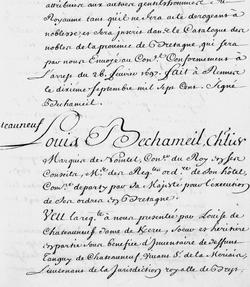 attribuez aux autres gentilshommes
Royaume tant quil ne fera acte derogeant a
noblesse et sera inscrit dans le Catalogue des
nobles de la province de Bretagne qui sera
par nous Envoyé au Con.el Conformement a
L'arrest du 26. fevrier 1697. fait a Rennes
le dixieme septembre mil sept Cent. Signé
Bechameil.
Louis Bechameil, Ch.lier
Marquis de Nointel, Con.er du Roy en ses
Conseils, M.e des Req.tes ord.re de son hotel,
Con.re departy par Sa Majesté pour l'execution
de ses ordres en Bretagne.
Veu la req.te a nous presentée par Louise de
Chateauneuf dame de Kere, soeur et heritiere
en partie sous benefice d'inventaire de deffunt
Tanguy de Chateauneuf, vivant S.r de la
Lieutenant de la Jurisdiction royalle de